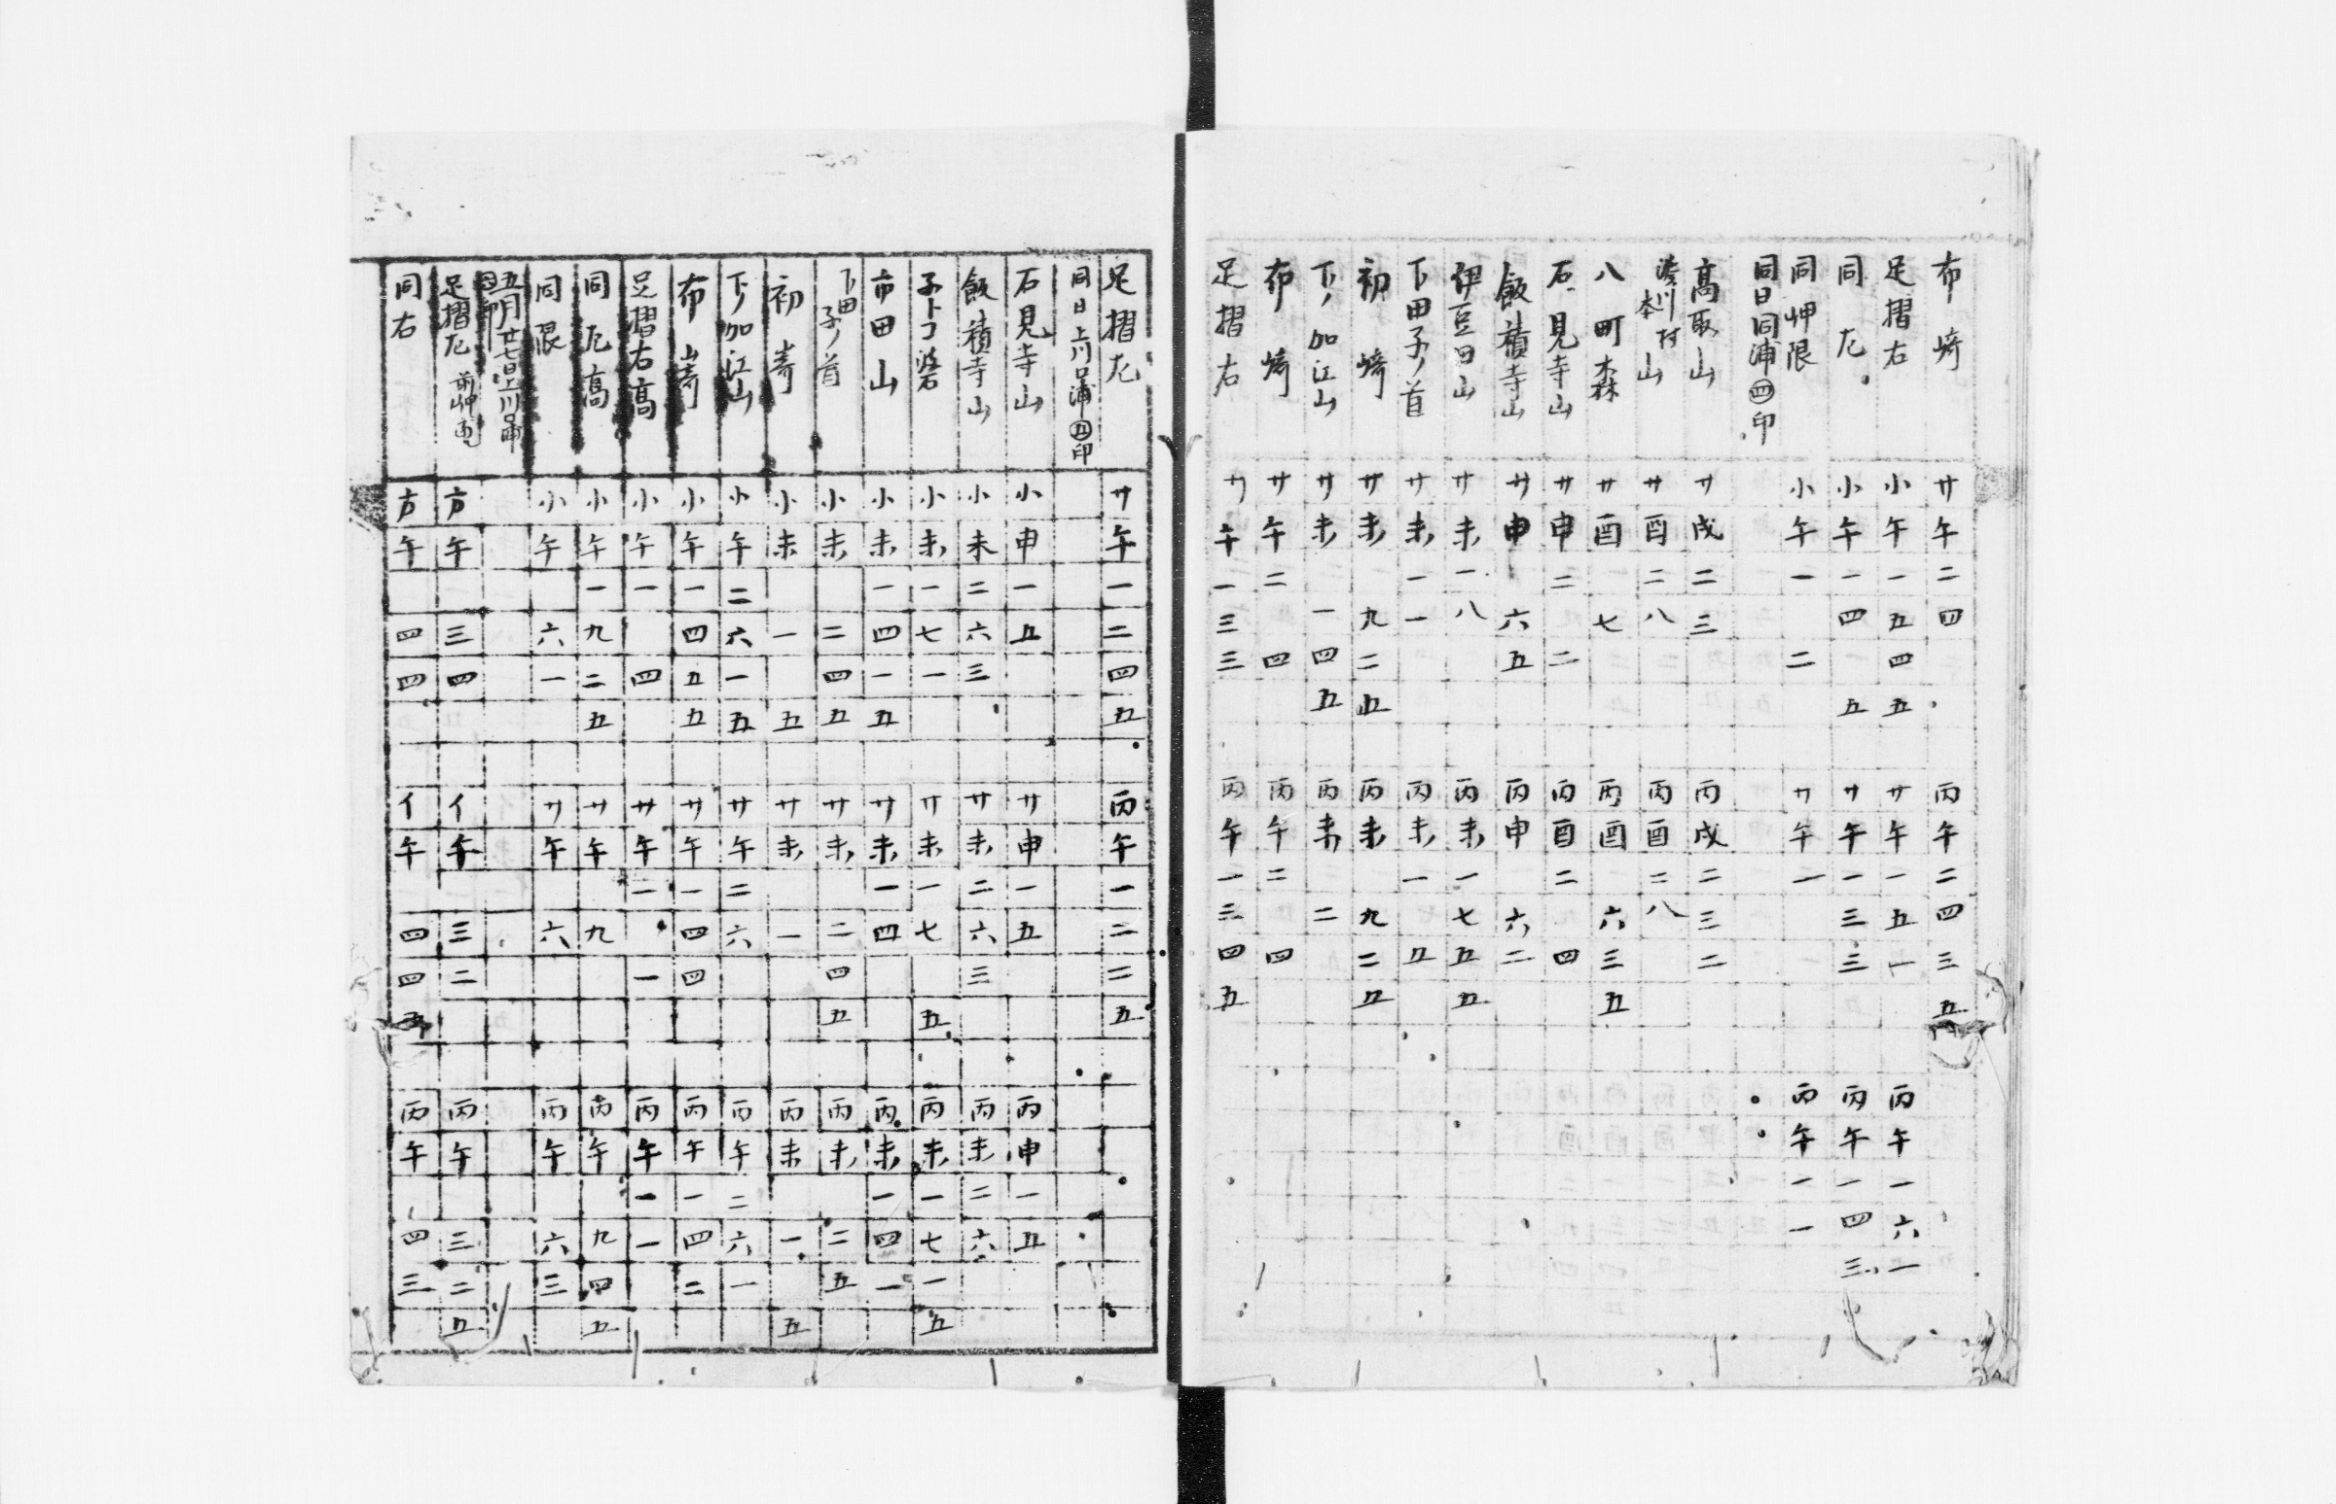 布崎 廿午二四 丙午二四三五
足摺右 小午一五四五 廿午一五一 丙午一六一
同左 小午一四 五 廿午一三三 丙午一四三
同岬限 小午一 二 廿午一 丙午一一
同日同浦㊃印
高取山 廿戌二三 丙戌二三二
湊川村 本山 廿酉二八 丙酉二八
八町森 廿酉 七 丙酉 六三五
石見寺山 廿申二 二 丙酉二 四
飯積寺山 廿申 六五 丙申 六二
伊豆田山 廿未一八 丙未一七五五
下田子ノ首 廿未一一 丙未一 五
初崎 廿未 九二五 丙未 九二五
下ノ加江山 廿未 一四五 丙未 二
布崎 廿午二 四 丙午二 四
足摺右 廿午一三三 丙午一三四五
足摺左 廿午一二四五 丙午一二二五
同日上川口浦㊄印
石見寺山 小申一五 廿申一五 丙申一五
飯積寺山 小未二六三 廿未二六三 丙未二六
子トコ碆 小未一七一 廿未一七 五 丙未一七一五
市田山 小未一四一五 廿未一四 丙未一四一
下田子ノ首 小未 二四五 廿未 二四五 丙未 二五
初崎 小未 一 五 廿未 一 丙未 一 五
下ノ加江山 小午二六一五 廿午二六 丙午二六一
布崎 小午一四五五 廿午一四四 丙午一四二
足摺右高 小午一 四 廿午一 一 丙午一一
同左高 小午一九二五 廿午 九 丙午 九四五
同限 小午 六一 廿午 六 丙午 六三
五月廿七日上川口浦
足摺左 前岬 午 三四 イ午 三二 丙午 三二五
同右 午 四四 イ午 四四五 丙午 四三